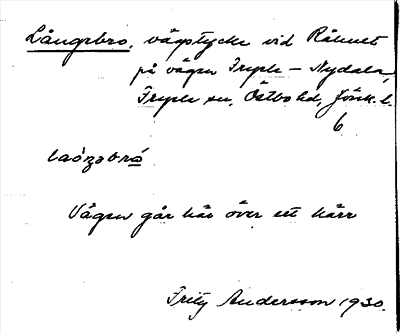 Långebro, vägstycke vid Råhult
på vägen Fryele – Nydala,
Fryele sn, Östbo hd, Jönk. l.
6
Vägen går här över ett kärr
Fritz Andersson 1930.